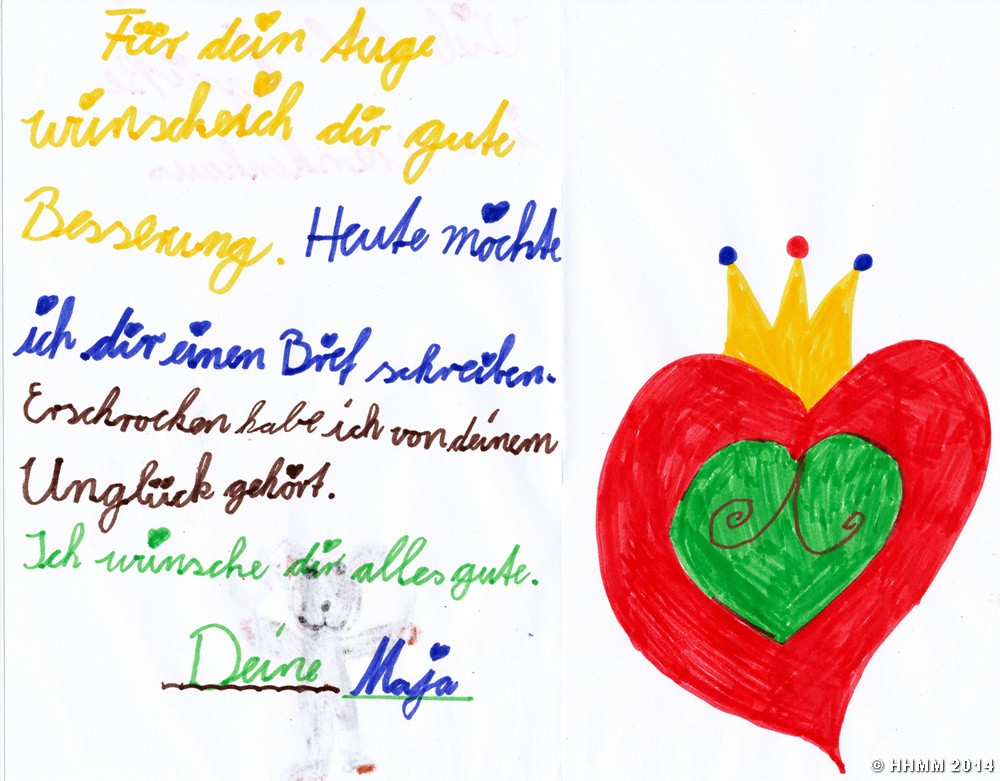 Für dein Auge
wünsche ich dir gute
Besserung. Heute möchte
ich dir einen Brief schreiben.
Erschrocken habe ich von deinem
Unglück gehört.
Ich wünsche dir alles gute.
Deine Maja
© HHMM 2014